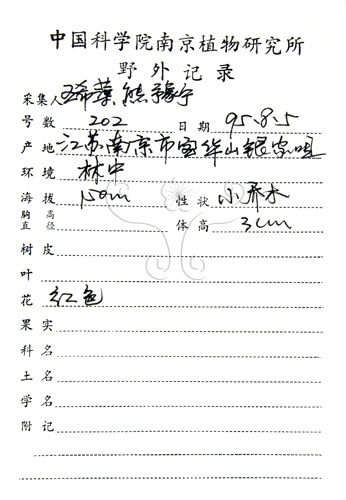 中国科学院南京植物研究所
野外记录
采集人 王希蕖 熊豫宁
号数 202 日期 95.8.5
产地 江苏南京市宝华山
环境 林中
海拔 150m 性状 小乔木
胸高直径 体高 3cm
树皮
叶
花 红色
果实
科名
土名
学名
附记